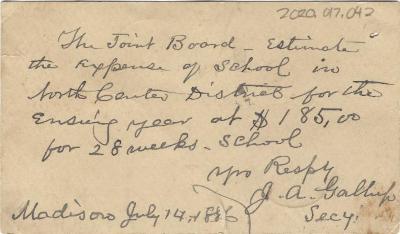 2020.017.042
The Joint Board - Estimate
the Expense of School in
North Center District for the
Ensuing year at $185,00
for 28 weeks - School
yrs Respy
J. A. Gallup
Madison July 14, Secy